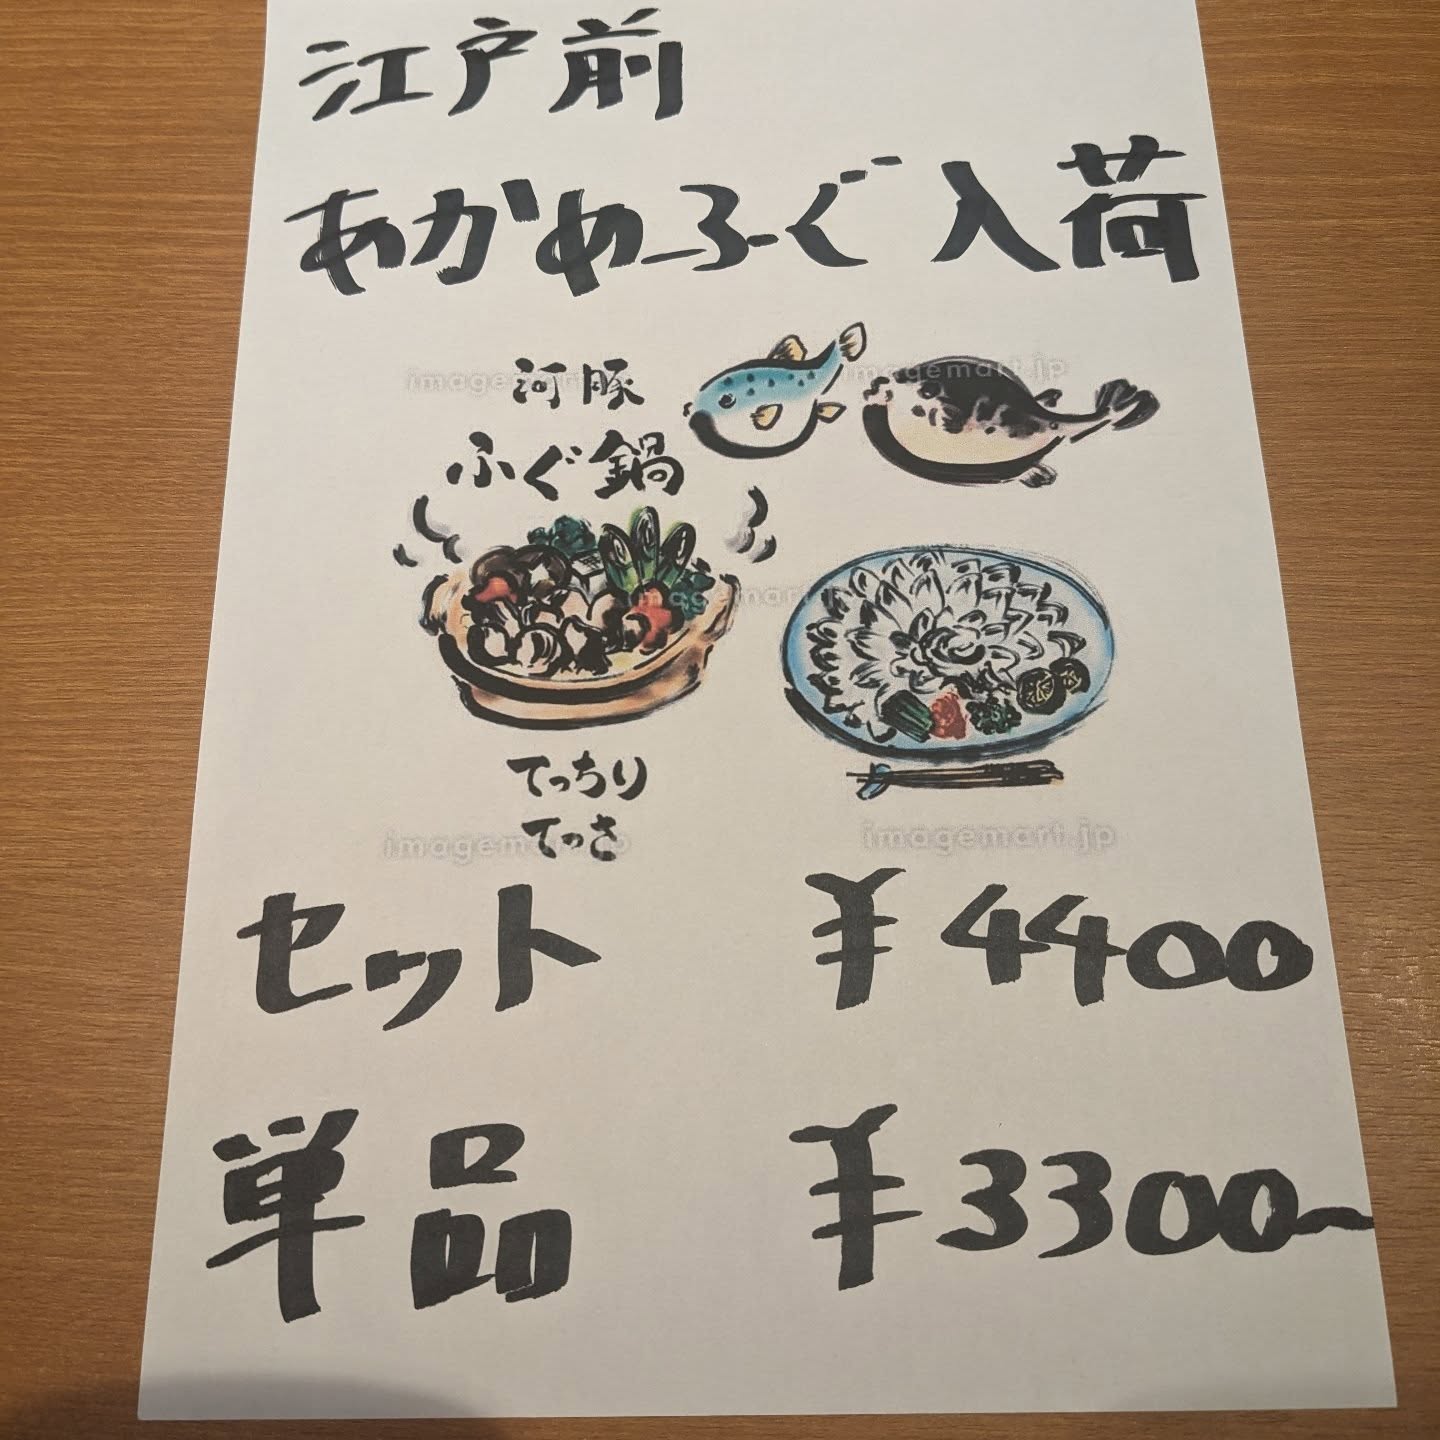 江戸前
あかめふぐ入荷
河豚
ふぐ鍋
てっちり
てっさ
セット ¥4400
単品 ¥3300~
imagemart.jp
imagemart.jp
imagemart.jp